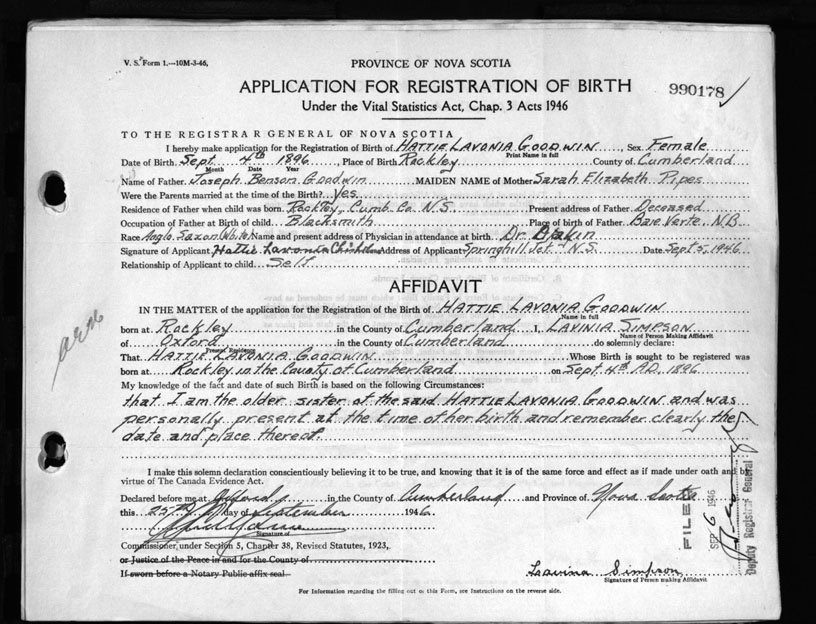 V. S. Form 1.—10M-3-46.
PROVINCE OF NOVA SCOTIA
APPLICATION FOR REGISTRATION OF BIRTH
990178
Under the Vital Statistics Act, Chap. 3 Acts 1946
TO THE REGISTRAR GENERAL OF NOVA SCOTIA
I hereby make application for the Registration of Birth of HATTIE LAVONIA GOODWIN, Sex Female
Print Name in full
Date of Birth Sept 4th 1896, Place of Birth Rockley County of Cumberland
Month Date Year
Name of Father Joseph Benson Goodwin MAIDEN NAME of Mother Sarah Elizabeth Pipes
Were the Parents married at the time of the Birth? Yes
Residence of Father when child was born Rockley, Cumb. Co. N.S. Present address of Father Deceased
Occupation of Father at Birth of child Blacksmith Place of birth of Father Baie Verte, N.B.
Race Anglo Saxon (White) Name and present address of Physician in attendance at birth Dr.
Signature of Applicant Hattie Lavonia Address of Applicant Springhill Jct. N.S. Date Sept 5, 1946
Relationship of Applicant to child Self
AFFIDAVIT
IN THE MATTER of the application for the Registration of the Birth of HATTIE LAVONIA GOODWIN
Name in full
born at Rockley in the County of Cumberland I, LAVINIA SIMPSON
Name of Person Making Affidavit
of Oxford in the County of Cumberland do solemnly declare:
Present Residence
That HATTIE LAVONIA GOODWIN Whose Birth is sought to be registered was
born at Rockley in the County of Cumberland on Sept. 4th A.D. 1896
My knowledge of the fact and date of such Birth is based on the following Circumstances:
that I am the older sister of the said HATTIE LAVONIA GOODWIN and was
personally present at the time of her birth and remember clearly the
date and place thereof.
I make this solemn declaration conscientiously believing it to be true, and knowing that it is of the same force and effect as if made under oath and by
virtue of The Canada Evidence Act.
Declared before me at Oxford in the County of Cumberland and Province of Nova Scotia
this 25th day of September 1946
Signature of
Commissioner under Section 5, Chapter 38, Revised Statutes, 1923,
or Justice of the Peace in and for the County of
If sworn before a Notary Public affix seal
Lavinia Simpson
Signature of Person making Affidavit
For Information regarding the filling out of this Form, see Instructions on the reverse side.
FILED
1946
Deputy Registrar General